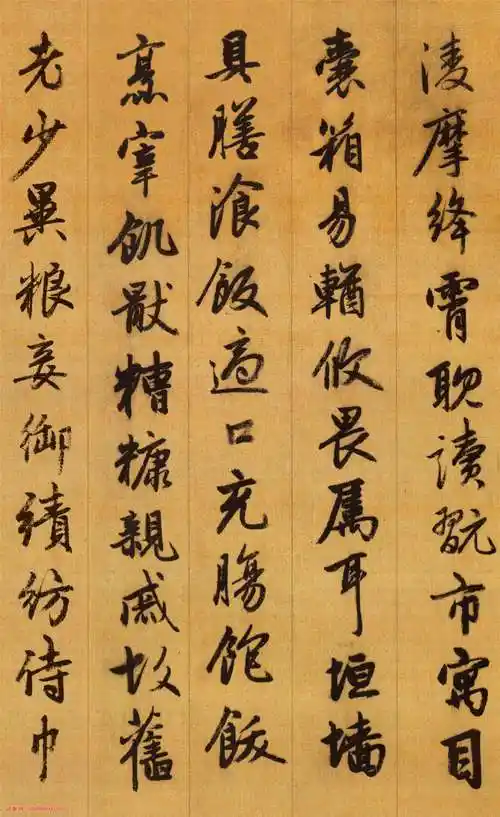 淩摩絳霄耽讀翫市寓目
囊箱易輶攸畏属耳垣墙
具膳湌飯適口充膓飽飫
烹宰飢猒糟糠親戚故舊
老少異粮妾御績紡侍巾